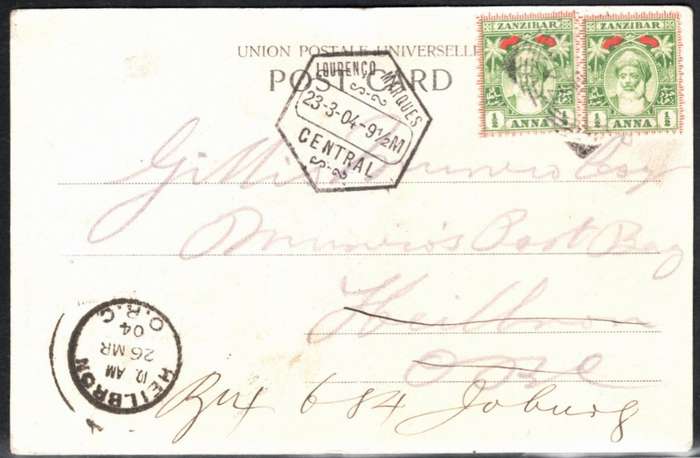 UNION POSTALE UNIVERSELLE
POST CARD
ZANZIBAR
½ ANNA ½
ZANZIBAR
½ ANNA ½
LOURENÇO MARQUES
23-3-04-9½M
CENTRAL
Esq
Munro's Post Bag
Heilbron
ORC
Box 684 Joburg
HEILBRON
10. AM
26 MR
04
O.R.C